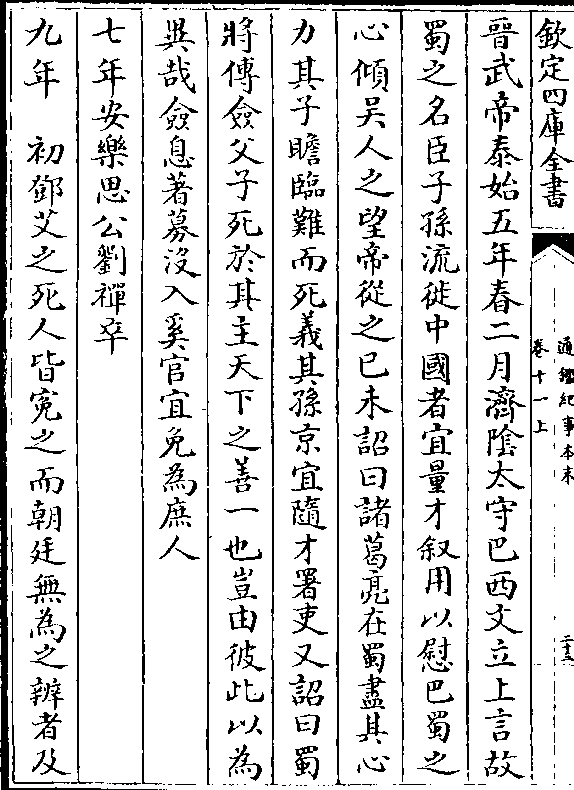 欽定四庫全書
通鑑紀事本末
卷十一上
二十三
晉武帝泰始五年春二月濟陰太守巴西文立上言故
蜀之名臣子孫流徙中國者宜量才叙用以慰巴蜀之
心傾吳人之望帝從之己未詔曰諸葛亮在蜀盡其心
力其子瞻臨難而死義其孫京宜隨才署吏又詔曰蜀
將傅僉父子死於其主天下之善一也豈由彼此以為
異哉僉息著募沒入奚官宜免為庶人
七年安樂思公劉禪卒
九年 初鄧艾之死人皆寃之而朝廷無為之辨者及